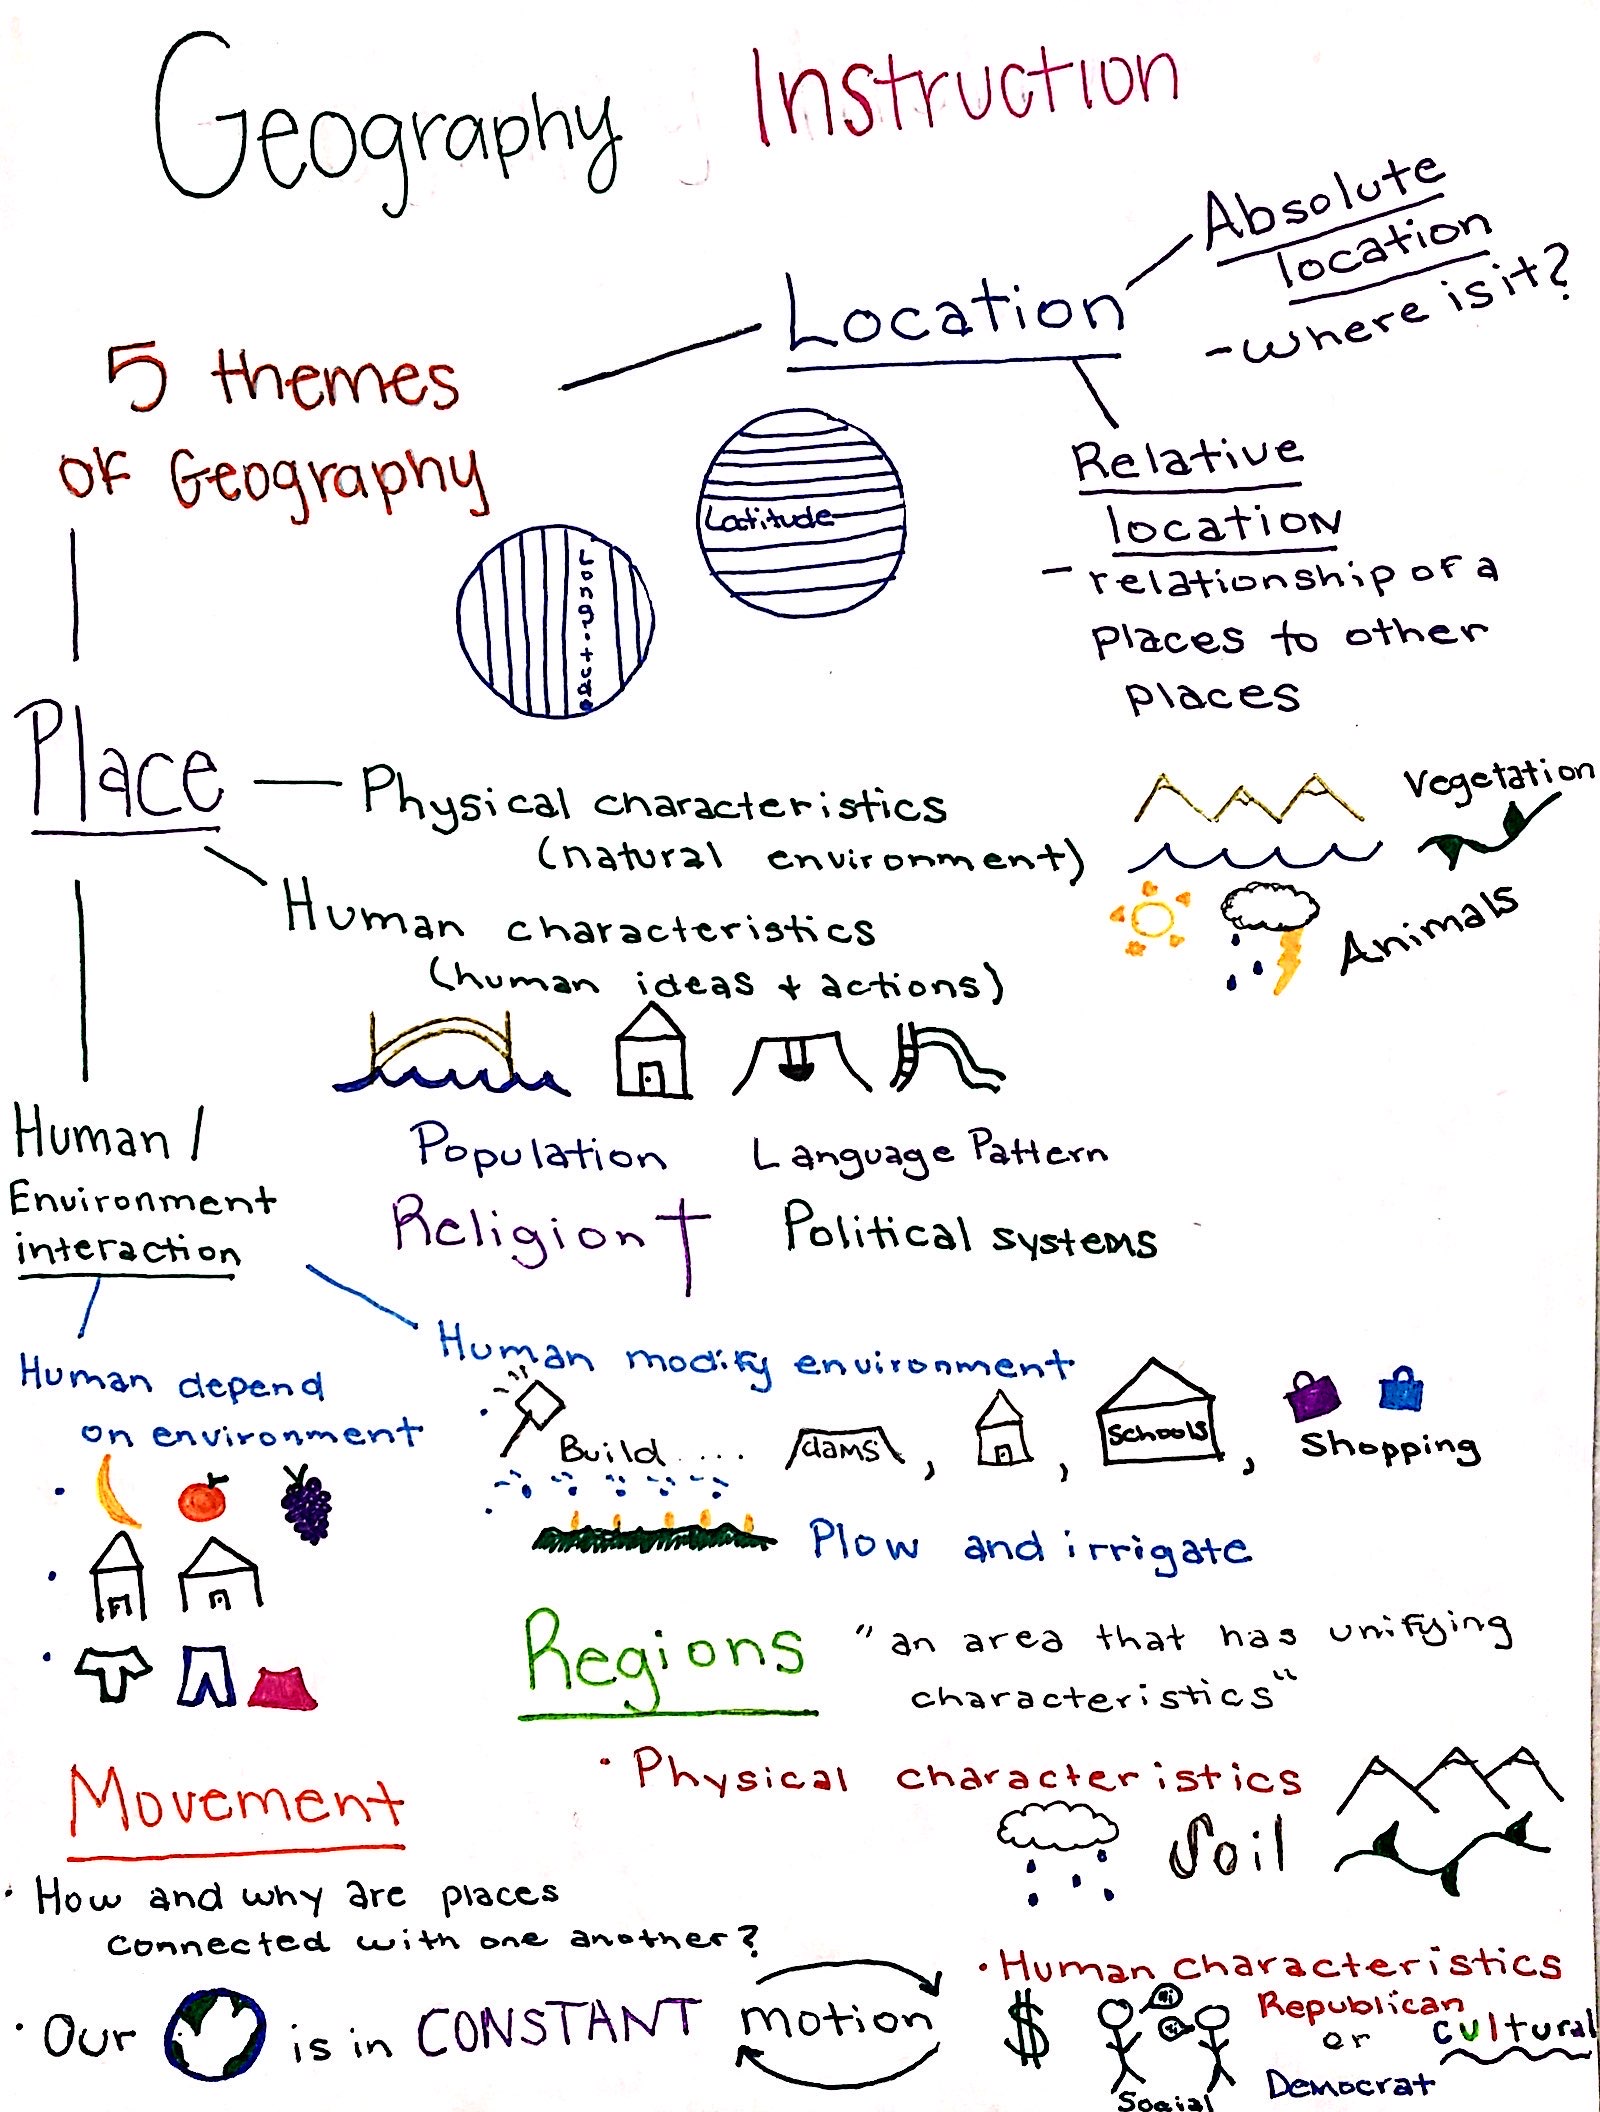 Geography Instruction
5 themes
of Geography
Location
Absolute
location
- where is it?
Relative
location
- relationship of a
places to other
places
Latitude
Longitude
Place
Physical characteristics
(natural environment)
Vegetation
Animals
Human characteristics
(human ideas + actions)
Population
Language Pattern
Religion
Political systems
Human /
Environment
interaction
Human depend
on environment
Human modify environment
Build .... dams, , Schools, Shopping
Plow and irrigate
Regions
"an area that has unifying
characteristics"
• Physical characteristics
Soil
• Human characteristics
$
Hi
Hi
Social
Republican
or
Democrat
cultural
Movement
• How and why are places
connected with one another?
• Our is in CONSTANT motion